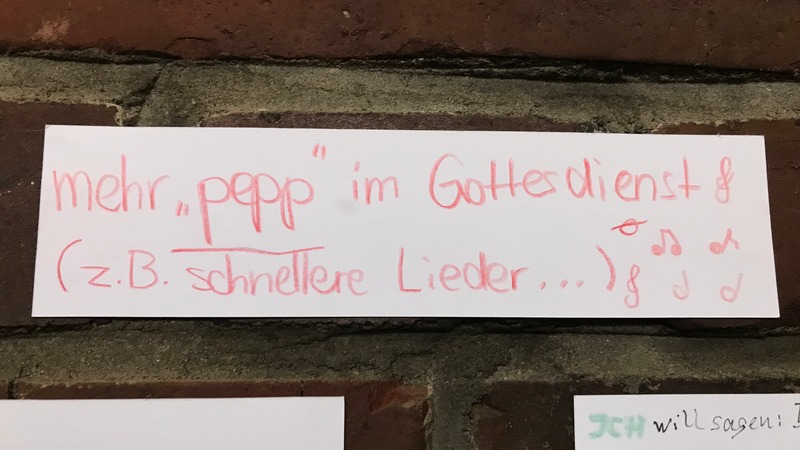 mehr „pepp“ im Gottesdienst
(z.B. schnellere Lieder...)
ICH will sagen: I